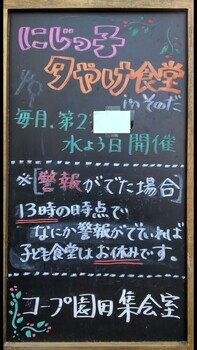 にじっ子
夕やけ食堂
in そのだ
毎月.第2
水よう日開催
※[警報がでた場合]
13時の時点で
なにか警報がでていれば
子ども食堂はお休みです。
コープ園田集会室